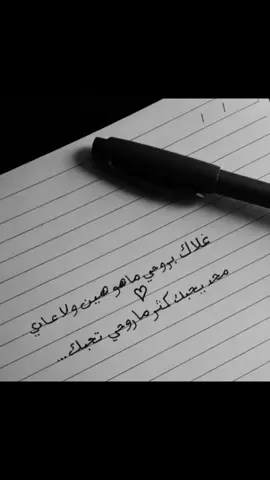 غلاك بروحي ماهو هين ولا عادي
محد يحبك كثر ماروحي تحبك...